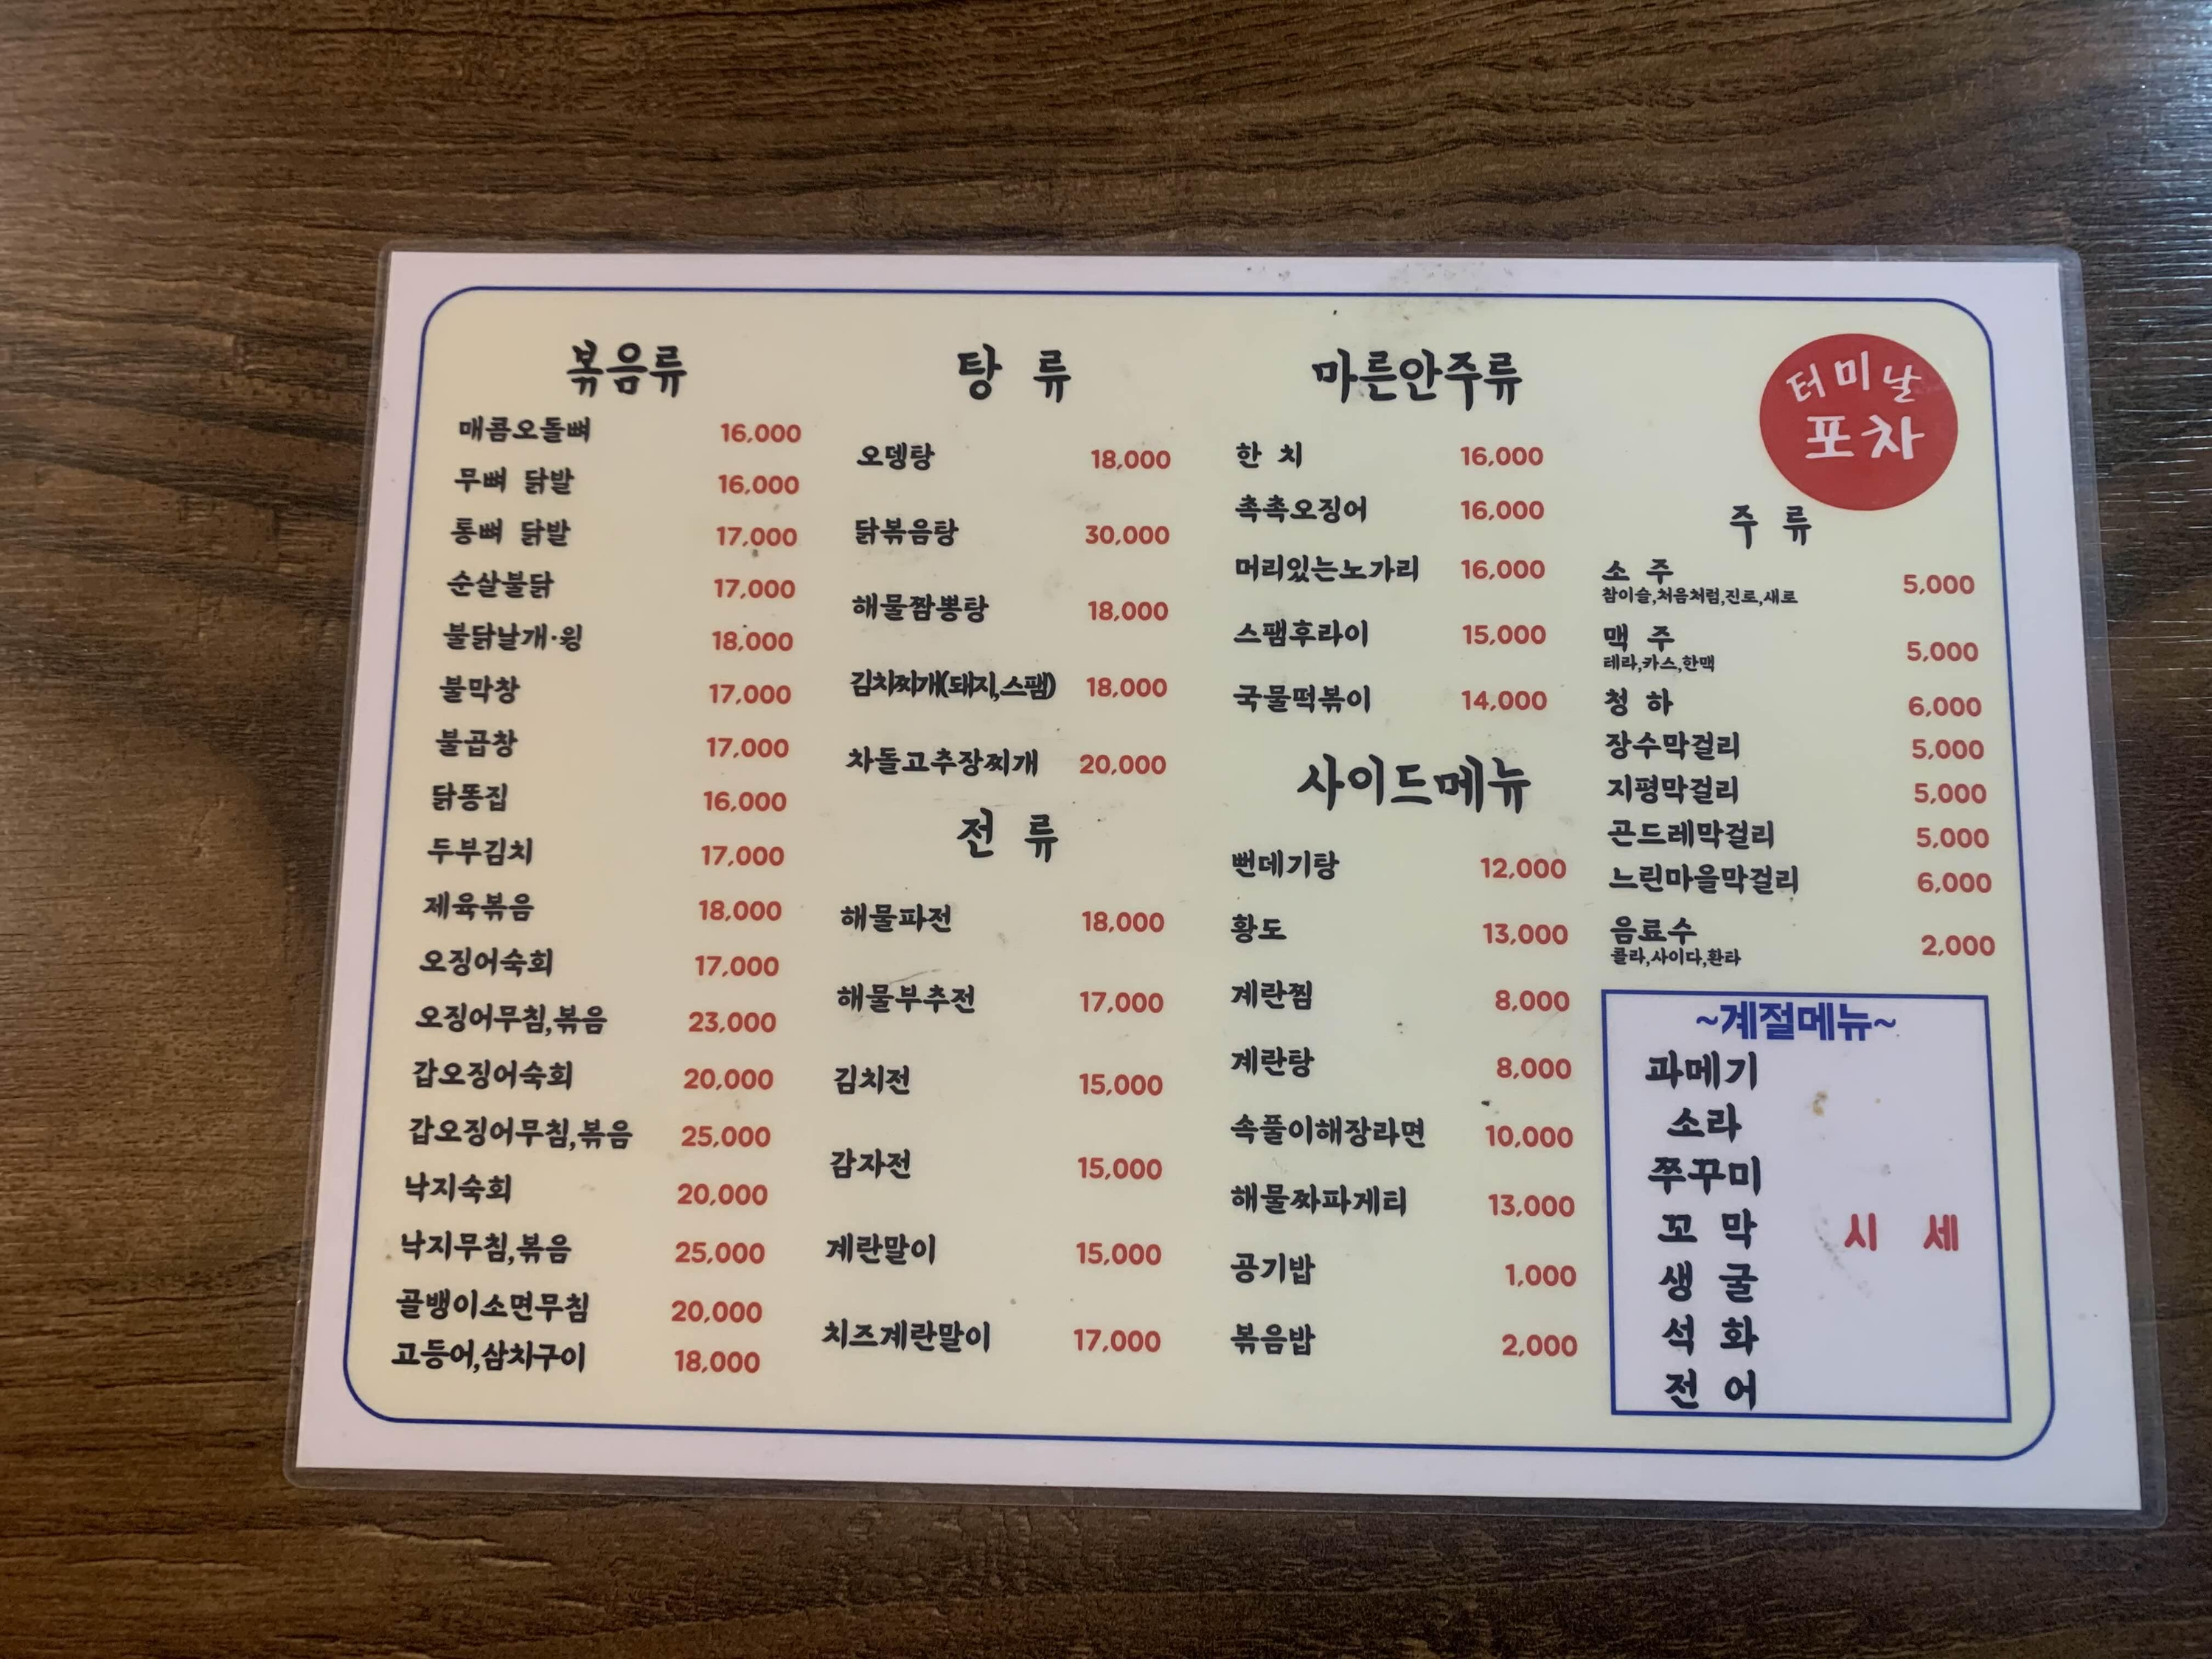 볶음류
매콤오돌뼈 16,000
무뼈 닭발 16,000
통뼈 닭발 17,000
순살불닭 17,000
불닭날개·윙 18,000
불막창 17,000
불곱창 17,000
닭똥집 16,000
두부김치 17,000
제육볶음 18,000
오징어숙회 17,000
오징어무침,볶음 23,000
갑오징어숙회 20,000
갑오징어무침,볶음 25,000
낙지숙회 20,000
낙지무침,볶음 25,000
골뱅이소면무침 20,000
고등어,삼치구이 18,000
탕 류
오뎅탕 18,000
닭볶음탕 30,000
해물짬뽕탕 18,000
김치찌개(돼지,스팸) 18,000
차돌고추장찌개 20,000
전 류
해물파전 18,000
해물부추전 17,000
김치전 15,000
감자전 15,000
계란말이 15,000
치즈계란말이 17,000
마른안주류
한 치 16,000
촉촉오징어 16,000
머리있는노가리 16,000
스팸후라이 15,000
국물떡볶이 14,000
사이드메뉴
뻔데기탕 12,000
황도 13,000
계란찜 8,000
계란탕 8,000
속풀이해장라면 10,000
해물짜파게티 13,000
공기밥 1,000
볶음밥 2,000
터미날
포차
주 류
소 주 5,000
참이슬,처음처럼,진로,새로
맥 주 5,000
테라,카스,한맥
청 하 6,000
장수막걸리 5,000
지평막걸리 5,000
곤드레막걸리 5,000
느린마을막걸리 6,000
음료수 2,000
콜라,사이다,환타
~계절메뉴~
과메기
소라
쭈꾸미
꼬 막 시 세
생 굴
석 화
전 어